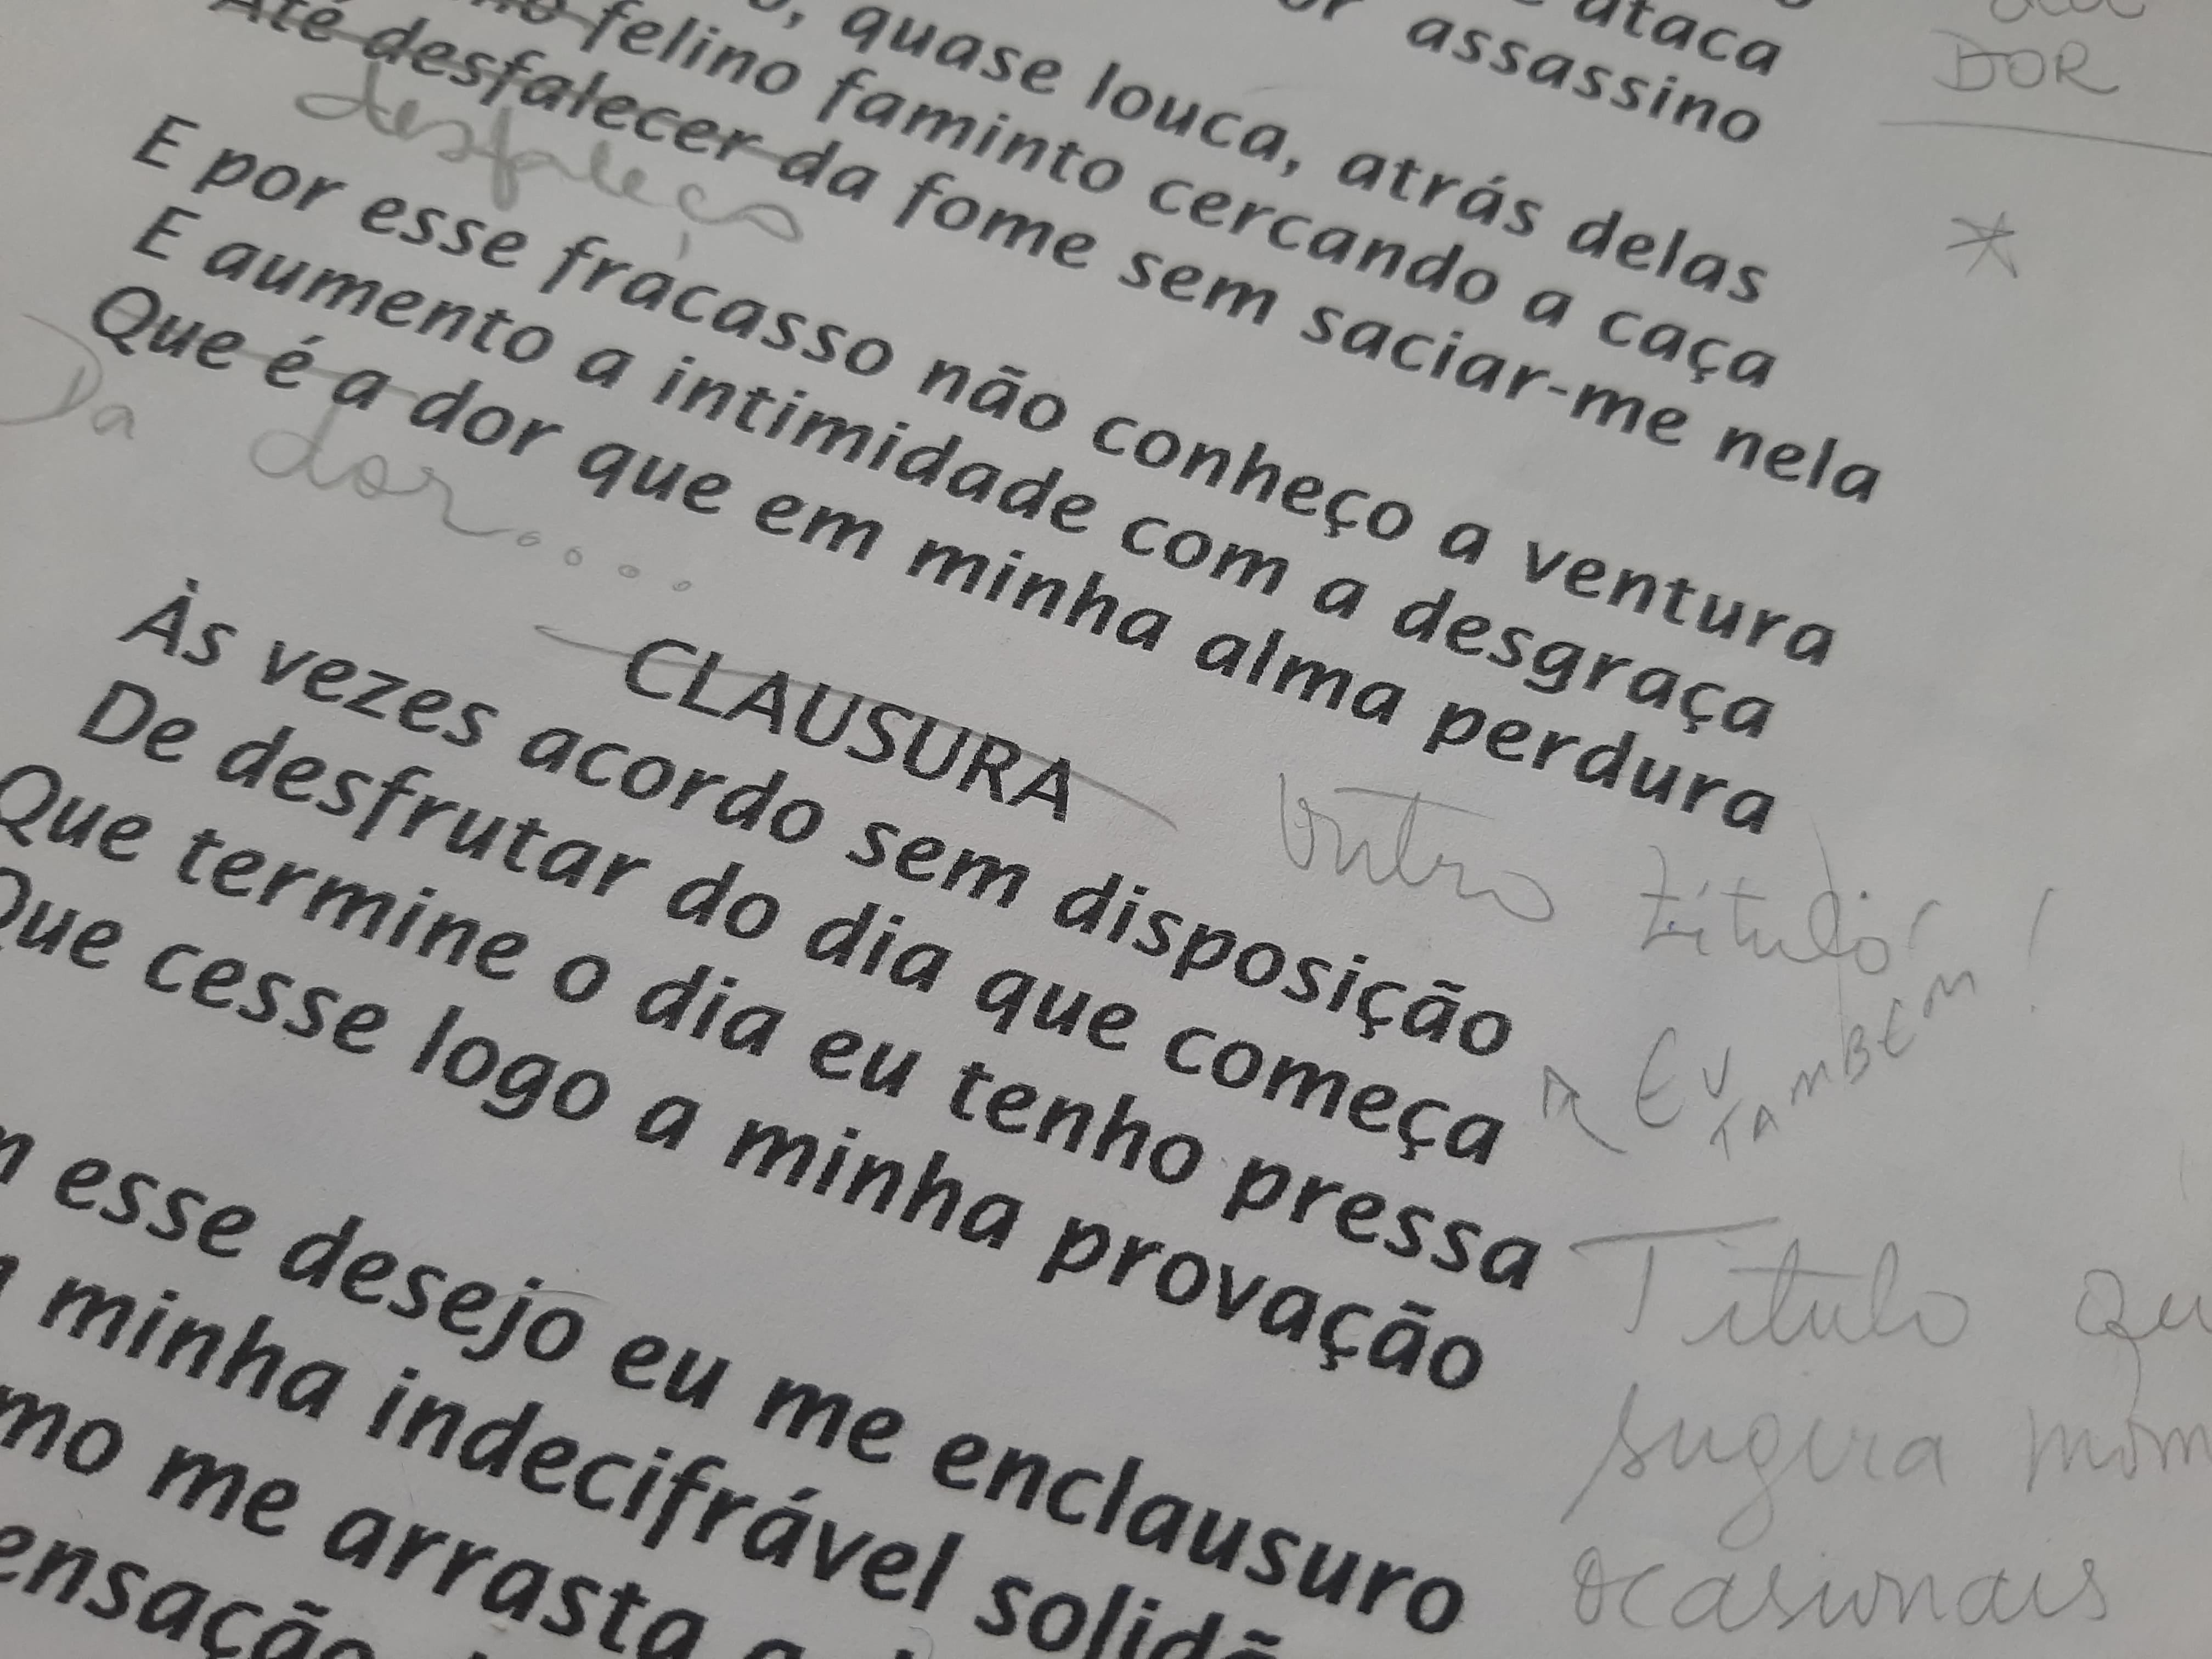 ataca
assassino
DOR
quase louca, atrás delas
felino faminto cercando a caça
Até desfalecer da fome sem saciar-me nela
desfaleço
*
E por esse fracasso não conheço a ventura
E aumento a intimidade com a desgraça
Que é a dor que em minha alma perdura
Da dor....
CLAUSURA
Outro título
Às vezes acordo sem disposição
De desfrutar do dia que começa
EU TAMBÉM!
Que termine o dia eu tenho pressa
Que cesse logo a minha provação
Título
sugira
ocasionais
esse desejo eu me enclausuro
minha indecifrável
me arrasta